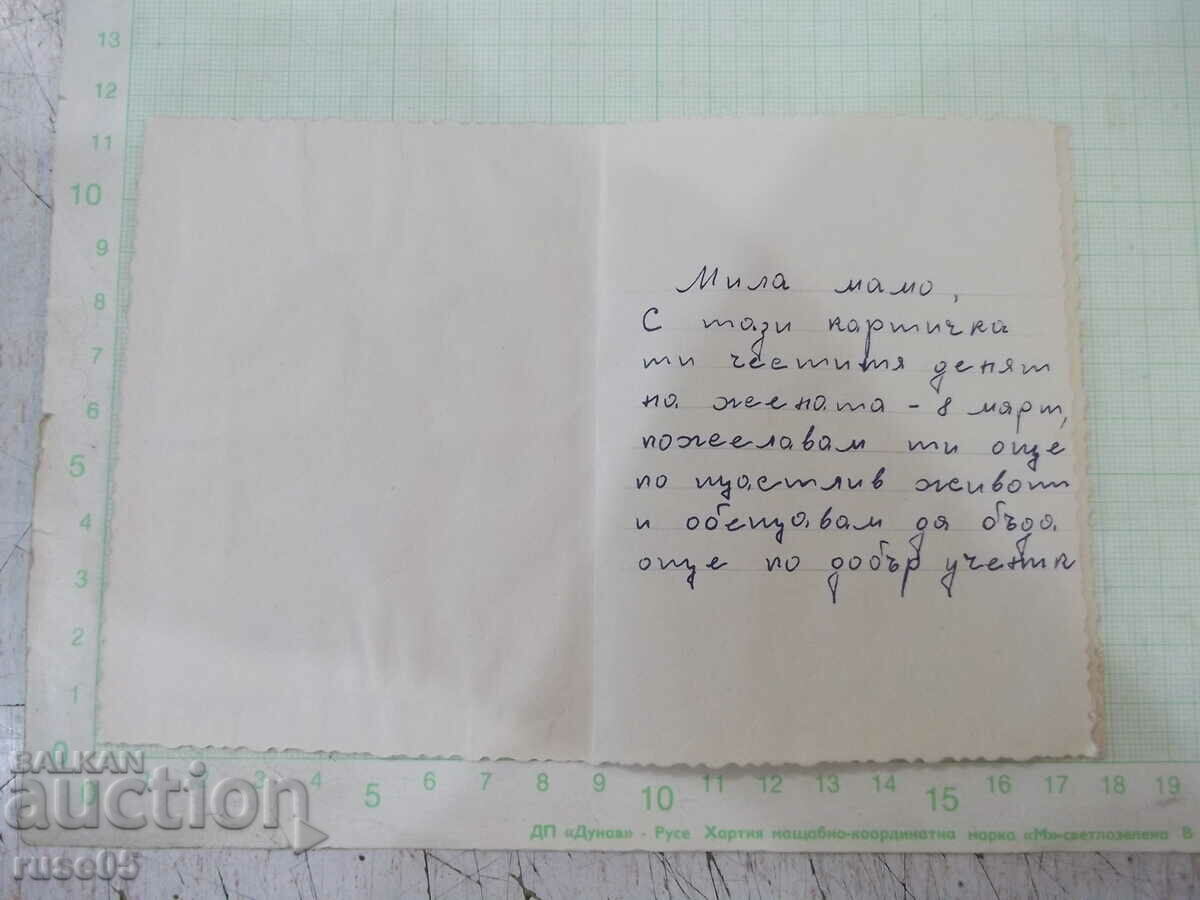 13
12
11
10
9
8
7
6
5
4
3
2
1
0
Мила мамо,
С тази картичка
ти честитя денят
на жената - 8 март,
пожелавам ти още
по щастлив живот
и обещавам да бъда
още по добър ученик
0 3 4 5 6 7 8 9 10 11 12 13 14 15 16 17 18 19
ДП «Дунав» - Русе Хартия мащабно-координатна марка «М»-светлозелена В
BALKAN
auction
ruse05